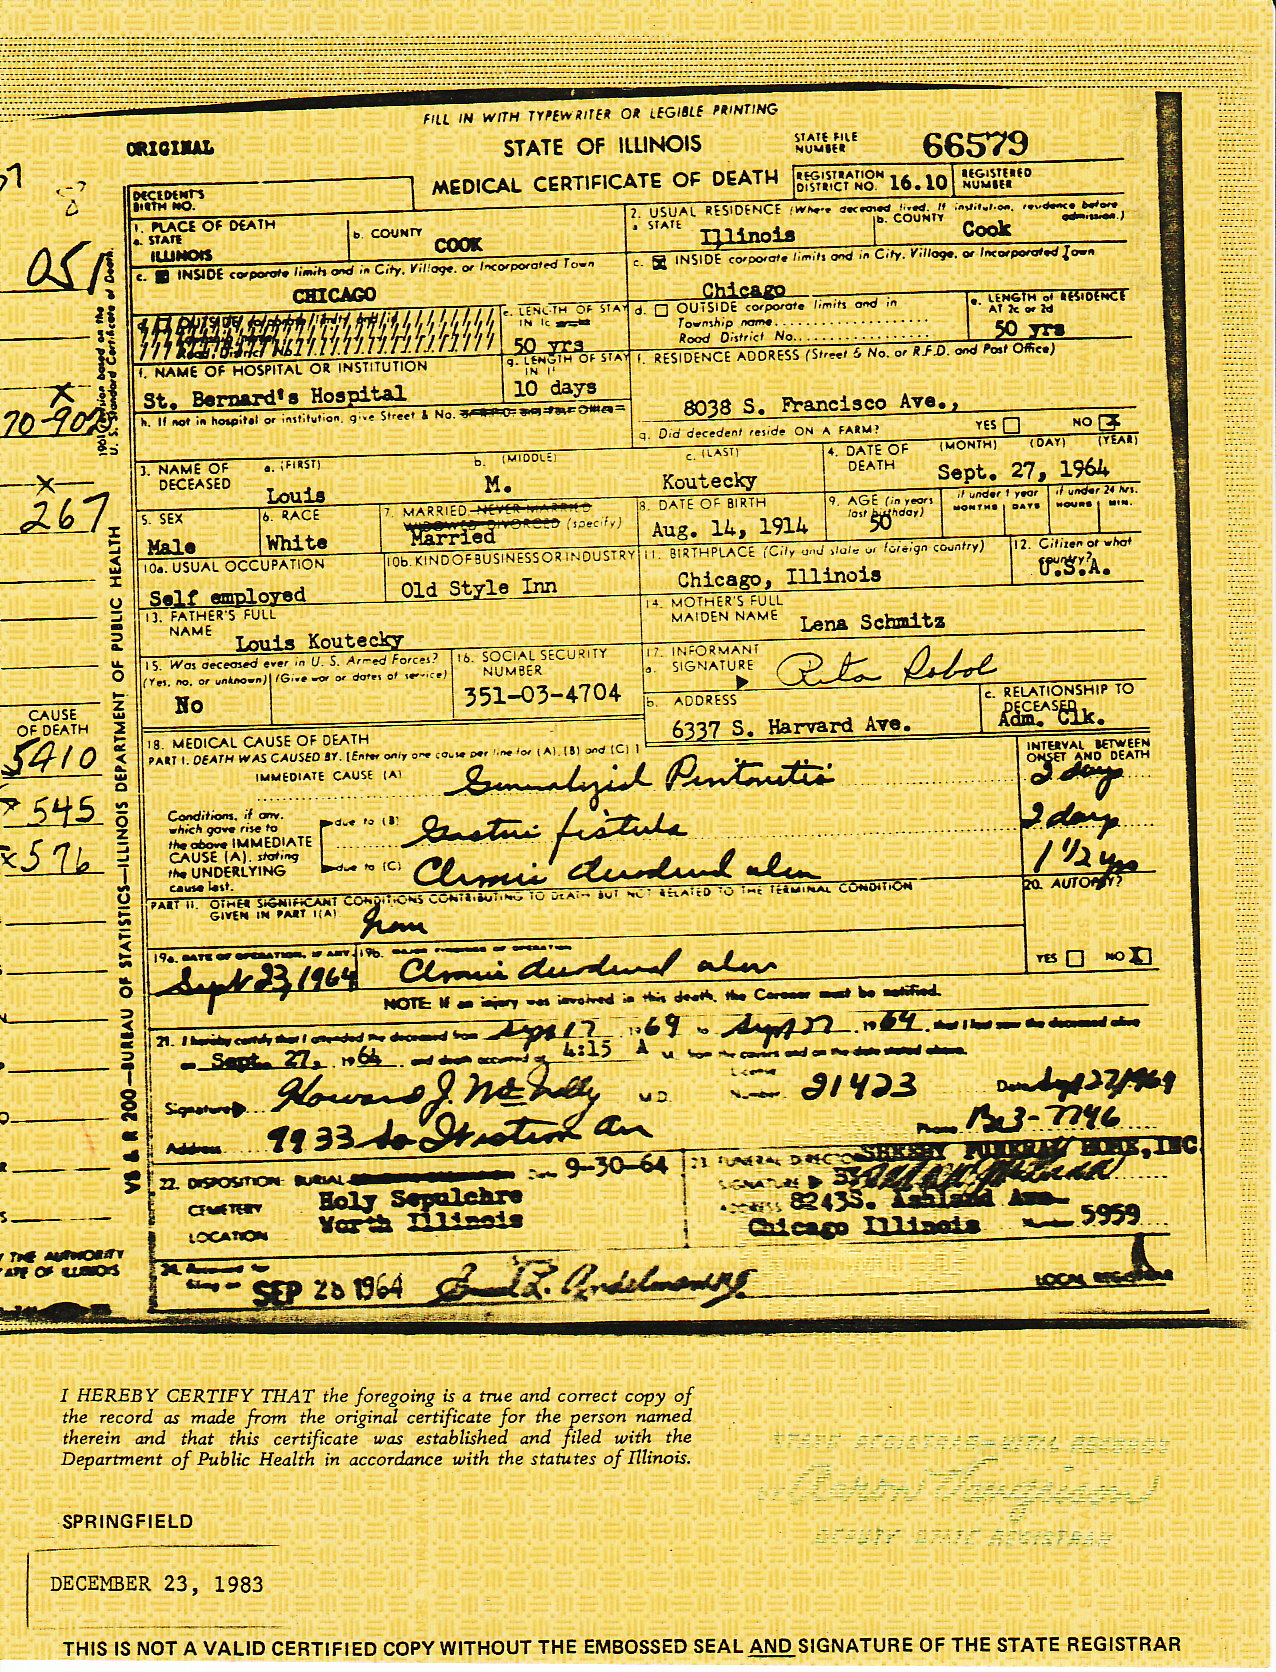 FILL IN WITH TYPEWRITER OR LEGIBLE PRINTING
ORIGINAL
STATE OF ILLINOIS
STATE FILE NUMBER 66579
MEDICAL CERTIFICATE OF DEATH
REGISTRATION DISTRICT NO. 16.10
REGISTERED NUMBER
DECEDENT'S BIRTH NO.
1. PLACE OF DEATH
a. STATE ILLINOIS
b. COUNTY COOK
2. USUAL RESIDENCE (Where deceased lived. If institution, residence before admission.)
a. STATE Illinois
b. COUNTY Cook
c. INSIDE corporate limits and in City, Village, or Incorporated Town
CHICAGO
c. INSIDE corporate limits and in City, Village, or Incorporated Town
Chicago
e. LENGTH OF STAY IN 1c
50 yrs
d. OUTSIDE corporate limits and in
Township name
Road District No.
e. LENGTH of RESIDENCE AT 2c or 2d
50 yrs
f. NAME OF HOSPITAL OR INSTITUTION
St. Bernard's Hospital
g. LENGTH OF STAY IN 1f
10 days
h. If not in hospital or institution, give Street & No.
f. RESIDENCE ADDRESS (Street & No. or R.F.D. and Post Office)
8038 S. Francisco Ave.,
g. Did decedent reside ON A FARM? YES NO X
3. NAME OF DECEASED
a. (FIRST) Louis
b. (MIDDLE) M.
c. (LAST) Koutecky
4. DATE OF DEATH (MONTH) (DAY) (YEAR)
Sept. 27, 1964
5. SEX Male
6. RACE White
7. MARRIED, NEVER MARRIED WIDOWED DIVORCED (specify)
Married
8. DATE OF BIRTH
Aug. 14, 1914
9. AGE (in years last birthday) 50
if under 1 year MONTHS DAYS
if under 24 hrs. HOURS MIN.
10a. USUAL OCCUPATION
Self employed
10b. KIND OF BUSINESS OR INDUSTRY
Old Style Inn
11. BIRTHPLACE (City and state or foreign country)
Chicago, Illinois
12. Citizen of what country?
U.S.A.
13. FATHER'S FULL NAME
Louis Koutecky
14. MOTHER'S FULL MAIDEN NAME Lena Schmitz
15. Was deceased ever in U. S. Armed Forces?
(Yes, no, or unknown) (Give war or dates of service)
No
16. SOCIAL SECURITY NUMBER
351-03-4704
17. INFORMANT
a. SIGNATURE Rita Robol
b. ADDRESS
6337 S. Harvard Ave.
c. RELATIONSHIP TO DECEASED
Adm. Clk.
18. MEDICAL CAUSE OF DEATH
PART I. DEATH WAS CAUSED BY. [Enter only one cause per line for (A), (B) and (C)]
INTERVAL BETWEEN ONSET AND DEATH
IMMEDIATE CAUSE (A) Generalized Peritonitis 2 days
Conditions, if any, which gave rise to the above IMMEDIATE CAUSE (A), stating the UNDERLYING cause last.
due to (B) Gastric fistula 2 days
due to (C) Chronic duodenal ulcer 1 1/2 yrs
PART II. OTHER SIGNIFICANT CONDITIONS CONTRIBUTING TO DEATH BUT NOT RELATED TO THE TERMINAL CONDITION GIVEN IN PART I(A)
20. AUTOPSY?
YES NO X
19a. DATE OF OPERATION, IF ANY
Sept 23, 1964
19b. MAJOR FINDINGS OF OPERATION
Chronic duodenal ulcer
NOTE: If an injury was involved in this death, the Coroner must be notified.
21. I hereby certify that I attended the deceased from Sept 17 1964 to Sept 27 1964, that I last saw the deceased alive
on Sept. 27, 1964 and death occurred at 4:15 A M. from the causes and on the date stated above.
Signature Howard J. McNally M.D. License Number 21423 Date Sept 27, 1964
Address 9933 So Western Av Phone Be3-7746
22. DISPOSITION: BURIAL Date 9-30-64
CEMETERY Holy Sepulchre
LOCATION Worth Illinois
23. FUNERAL DIRECTOR SHEEHY FUNERAL HOME, INC
SIGNATURE BY
ADDRESS 8243S. Ashland Ave.
Chicago Illinois Number 5959
24. Received for filing on SEP 28 1964
LOCAL REGISTRAR
051
X
70-902
X
267
CAUSE OF DEATH
5410
545
X 576
1961 Revision based on the U. S. Standard Certificate of Death
VS & R 200—BUREAU OF STATISTICS—ILLINOIS DEPARTMENT OF PUBLIC HEALTH
THE AUTHORITY
STATE OF ILLINOIS
I HEREBY CERTIFY THAT the foregoing is a true and correct copy of
the record as made from the original certificate for the person named
therein and that this certificate was established and filed with the
Department of Public Health in accordance with the statutes of Illinois.
STATE REGISTRAR—VITAL RECORDS
DEPUTY STATE REGISTRAR
SPRINGFIELD
DECEMBER 23, 1983
THIS IS NOT A VALID CERTIFIED COPY WITHOUT THE EMBOSSED SEAL AND SIGNATURE OF THE STATE REGISTRAR